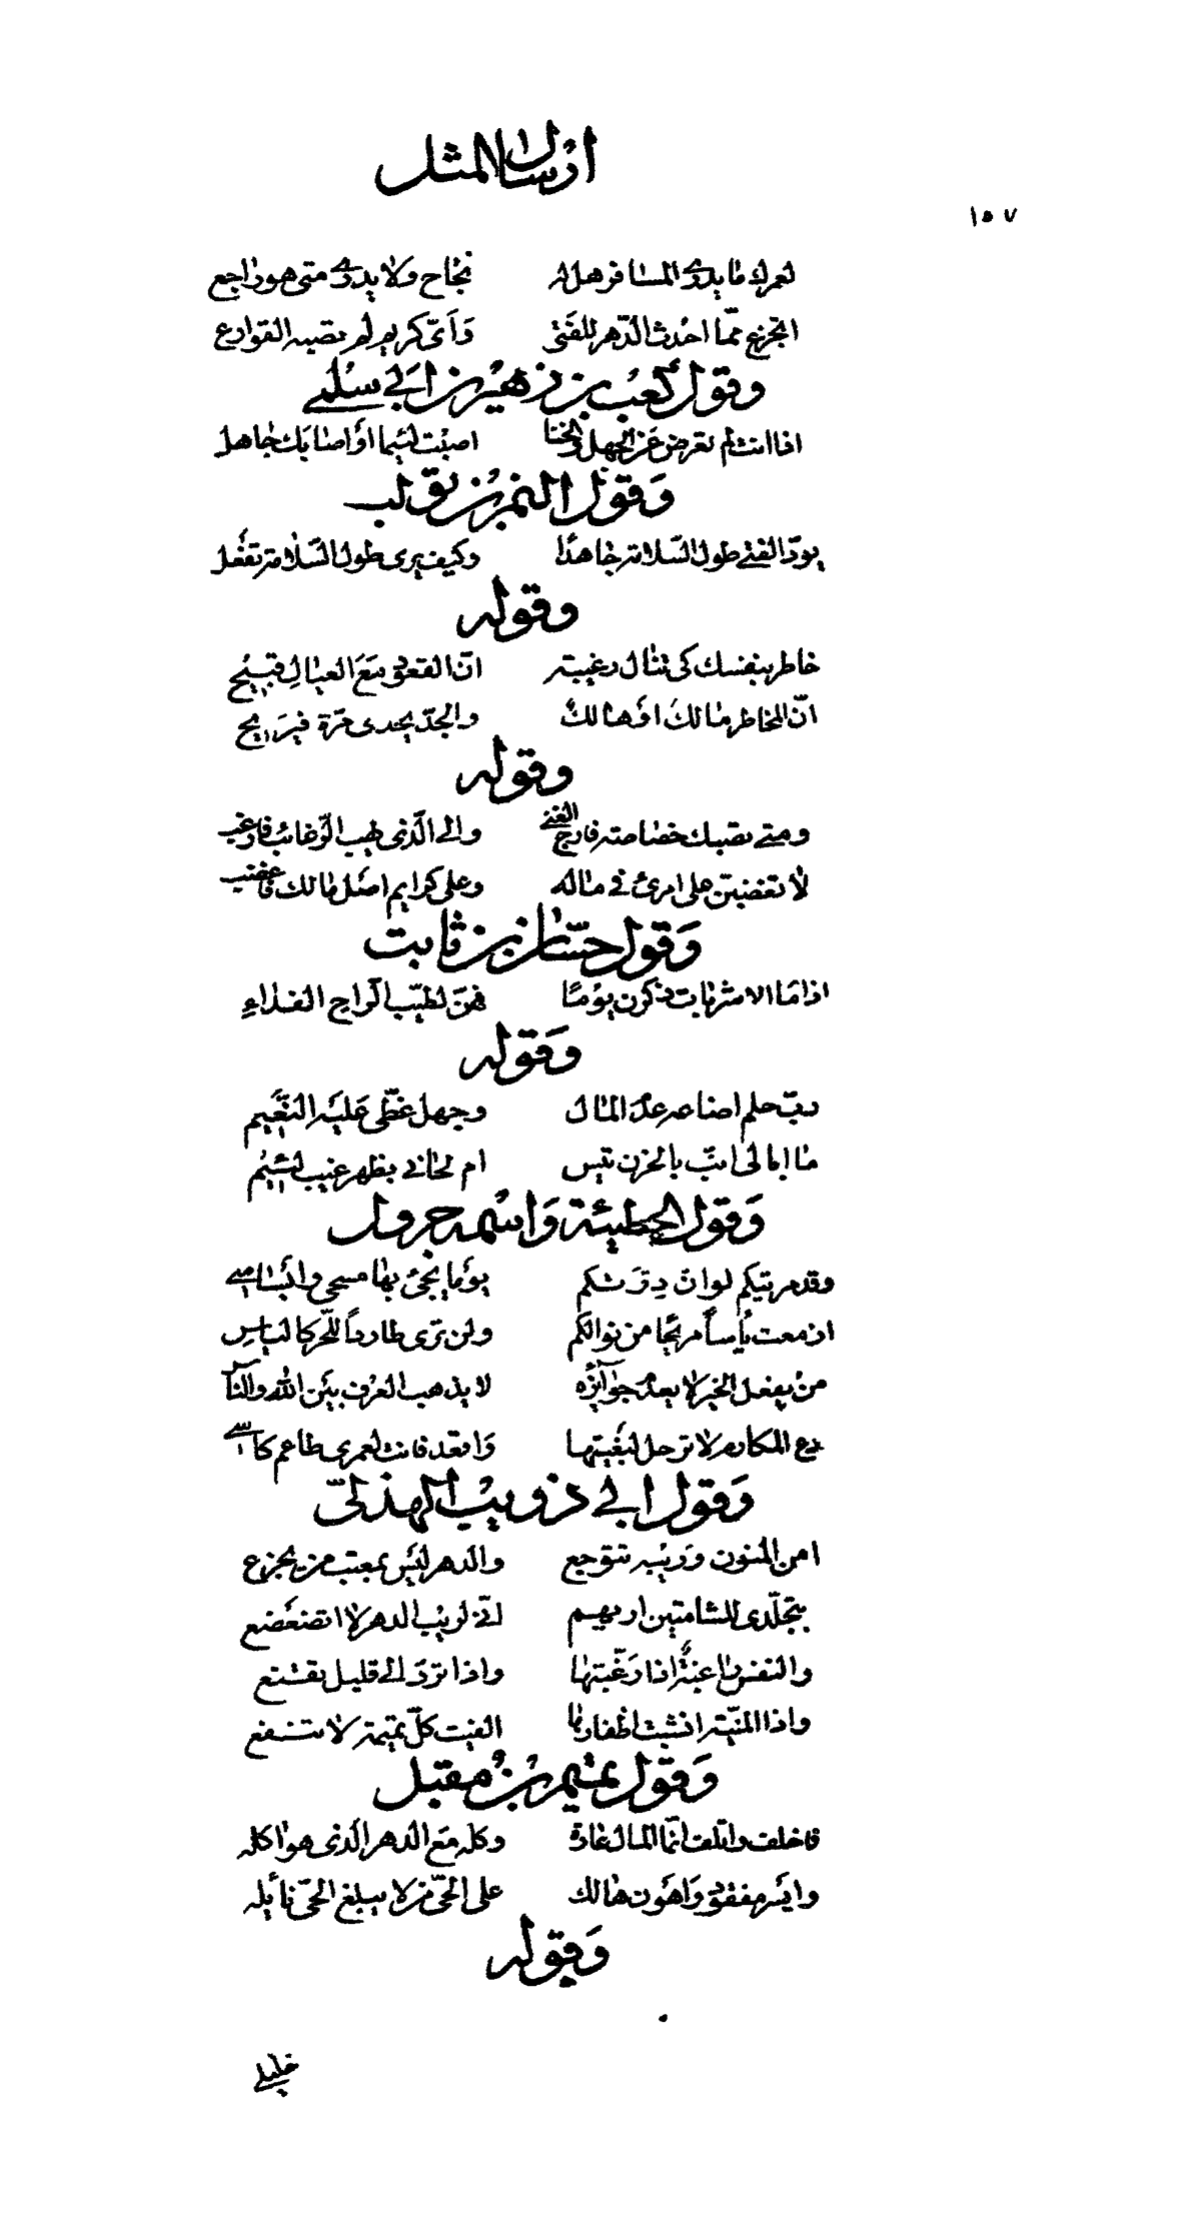 ارسال المثل
١٥٧
لعمرك ما يدرى المسافر هل له نجاح ولا يدرى متى هو راجع
اتجزع ممّا احدث الدّهر للفتى وَاَىّ كريم لم تصبه القوارع
وقول كعب بن زهير بن ابى سلمى
اذا انت لم تعرض عَن الجهل والخنا اصبْت لئيما اوْ اصابَك جاهل
وَقول النمر بن تولب
يودّ الفتى طول السّلامة جاهدًا وكيف يرى طول السّلامة تفعَل
وقوله
خاطر بنفسك كى تنال رغيبة انّ القعود مَعَ العيال قبيْح
انّ المخاطر مالكَ اوْ هالكٌ والجدّ يجدى مرّة فيرَيح
وقوله
ومتى تصبك خصاصة فارج الغنى والى الّذى يهب الرّغائب فارغب
لا تغضبنّ على امرئ فى ماله وعلى كرايم اصْل مالك فاغضب
وَقول حسّان بن ثابت
اذا مَا الاشربات ذكرن يوْمًا فهنّ لطيّب الراح الفداءِ
وَقوله
ربّ حلم اضاعه عدَم المال وجهل غطّى عَليْه النّعَيم
ما ابالى انبّ بالحزن تيس ام لحانى بظهر غيب لئيْم
وَقول الحطيئة وَاسْمه جرول
وقد مريتكم لو انّ درّتكم يوْما يجئ بها مسحى وابْساسى
ازمعت يأساً مريحًا من نوالكم ولن ترى طارداً للحّر كالياسِ
منْ يفعل الخير لا يعدَم جوآئزُه لا يذهب العرْف بيْن اللّه والنّاس
دع المكارم لا ترحل لبغْيتها وَاقعد فانت لعمرى طاعم كاسى
وَقول ابى ذويْب الهذلىّ
امن المنون وَريْبه تتوجع والدهر ليْس بمعتب من يجزع
بتجلّدى للشامتين اريهم انّى لريْب الدهر لا اتضعْضع
والنفس راغبةٌ اذا رَغّبتها واذا تردّ الى قليل تقنع
واذا المنيّة انشبت اظفارها الفيت كلّ تميمة لا تنفع
وَقول تميم بْن مُقبل
فاخلف واتلف انّما المال عارة وكله مَع الدهر الّذى هو اكله
وايْسر مفقود وَاهْون هالك على الحىّ من لا يبلغ الحىّ نأيله
وَقوله
خليلى